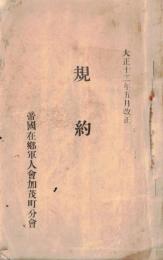 大正十二年五月改正
規約
帝國在鄉軍人會加茂町分會